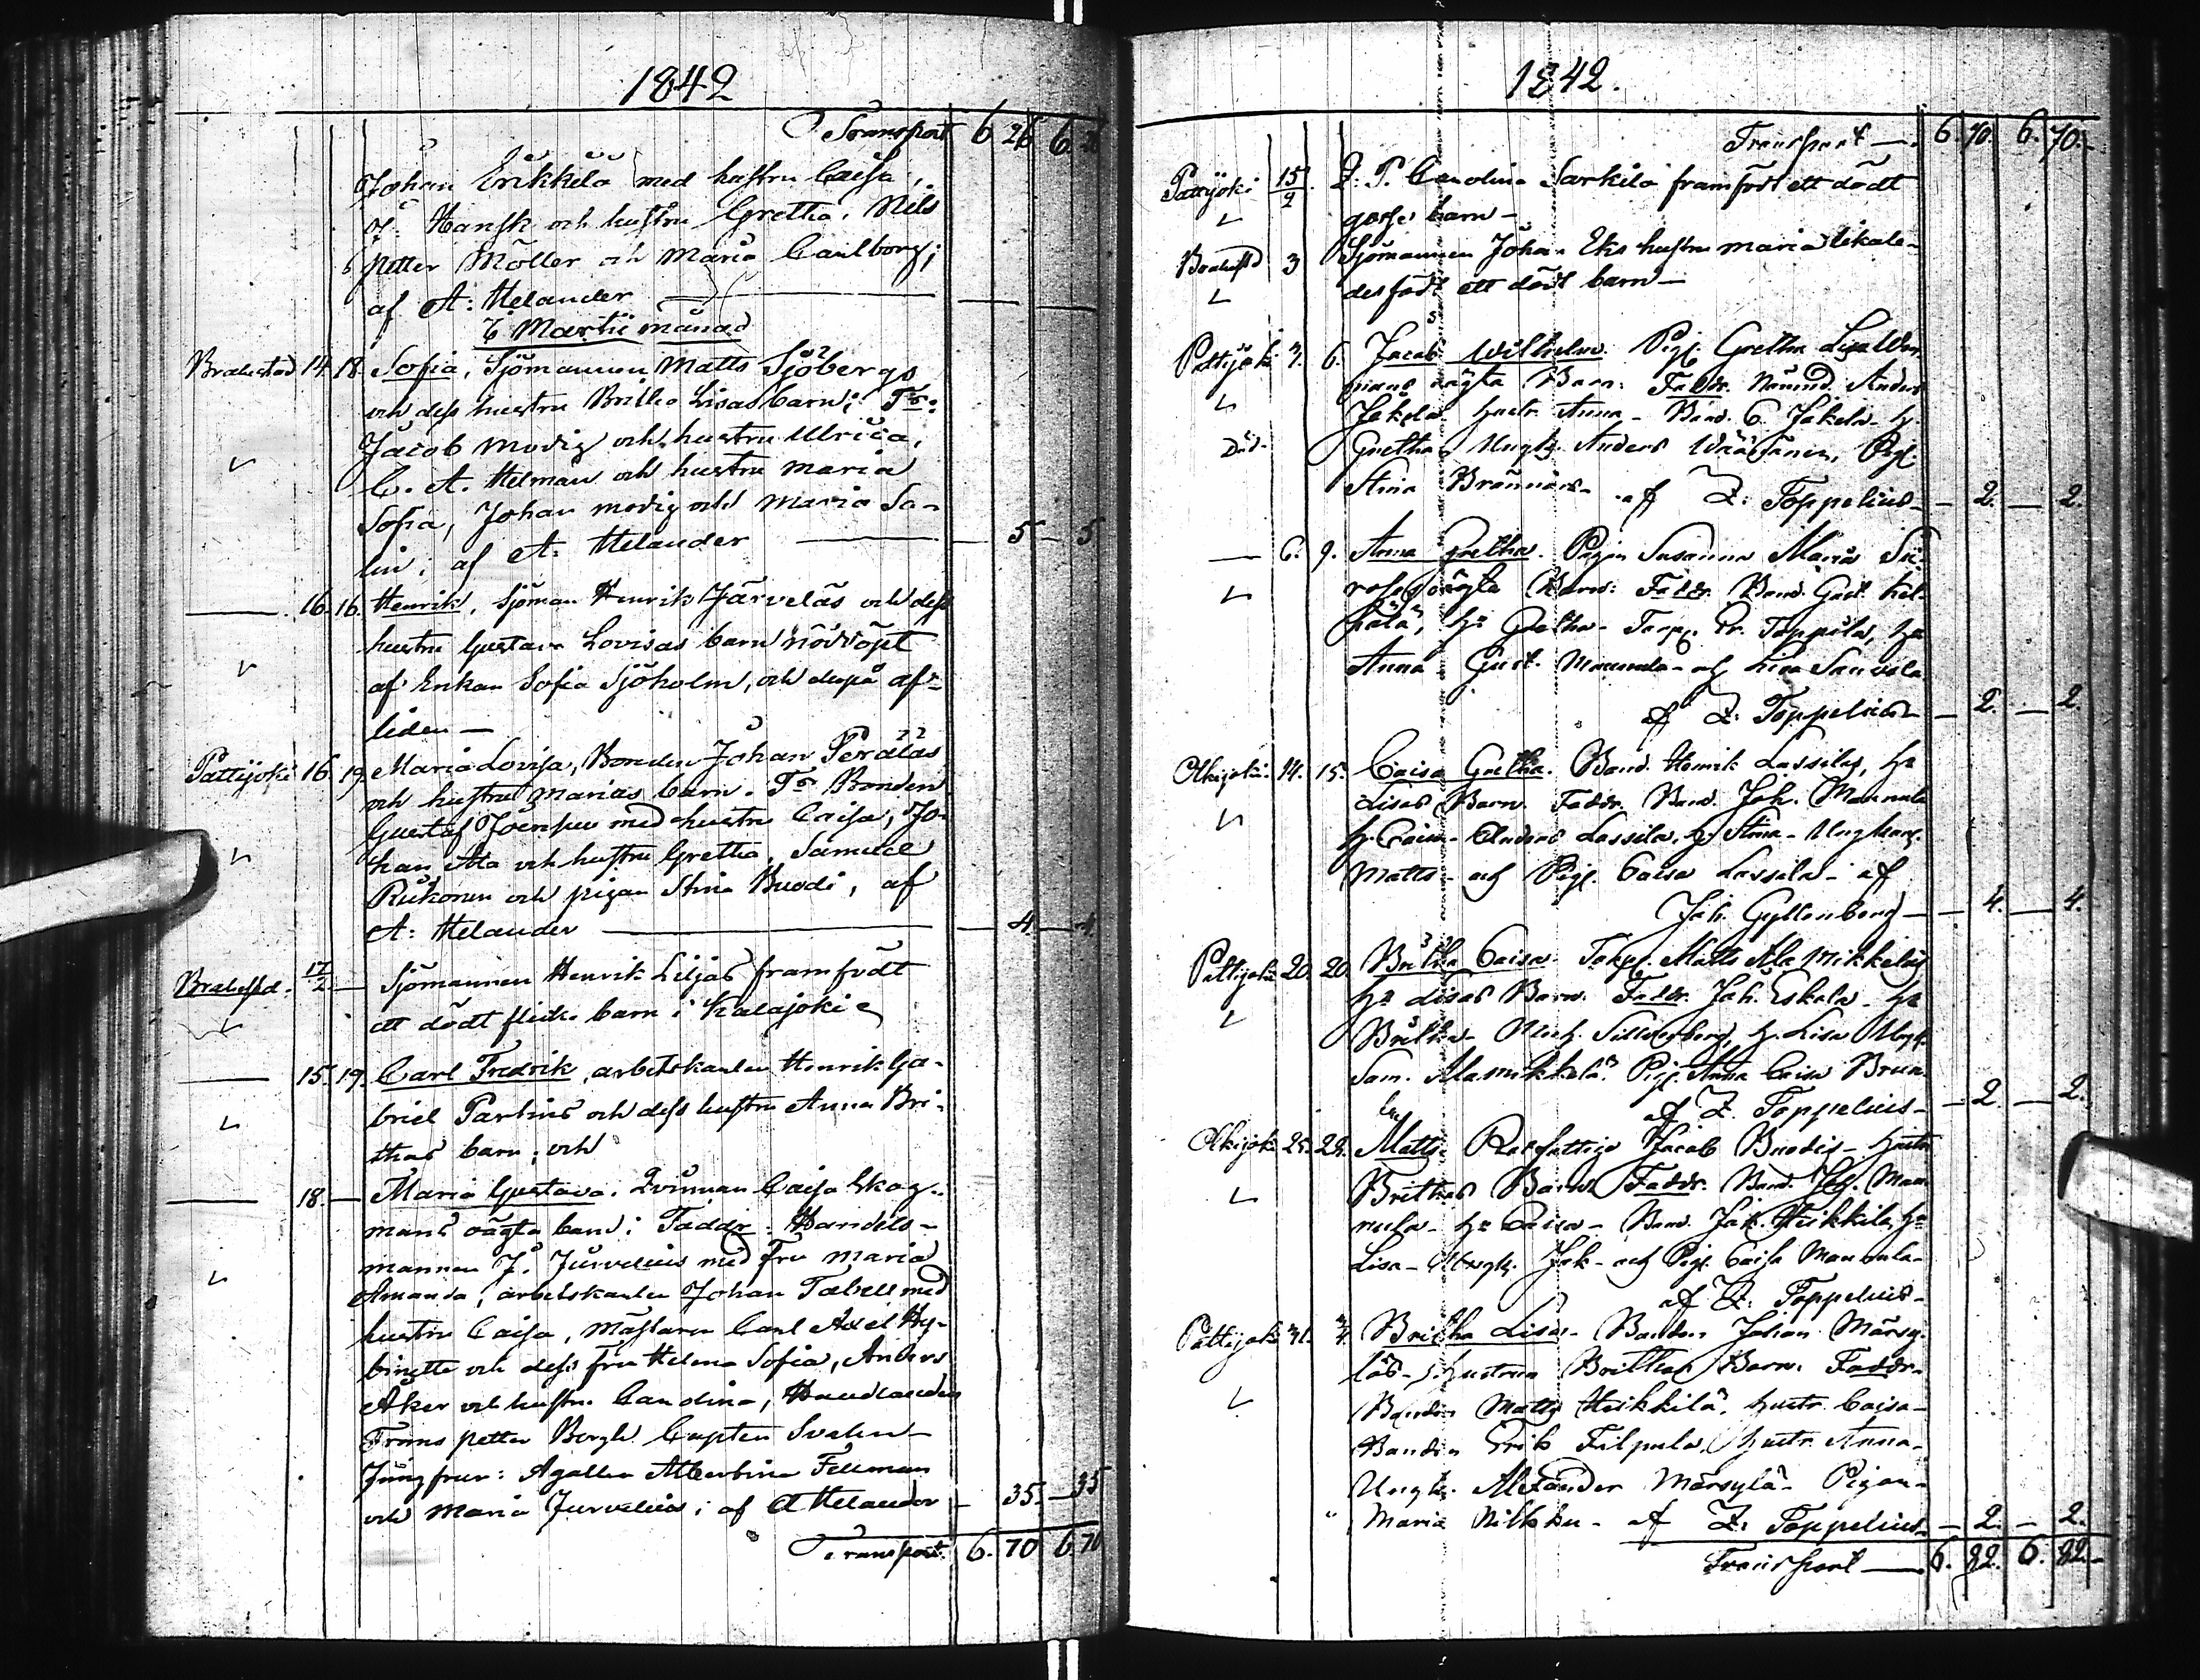 1842
Transport 6 26 6 26
Johan Erikkilä med hustru Caisa,
J: Hansk och hustru Gretha, Nils
Petter Möller och Maria Carlborg;
af A: Helander
Martii månad
Brahestad 14. 18. Sofia, Sjömannen Matts Sjöbergs
och dess hustru Britha Lisas barn; Fr:
Jacob Modig och hustru Ulrica,
C. A. Helman och hustru Maria
Sofia, Johan Modig och Maria Sa-
lin; af A: Helander — 5 — 5
— 16. 16. Henrik, Sjöman Henrik Järveläs och dess
hustru Gustava Lovisas barn nöddöpt
af Enkan Sofia Sjöholm, och derpå af-
liden —
Pattijoki 16. 19. Maria Lovisa, Bonden Johan Peräläs
och hustru Marias barn. Fr Bonden
Gustaf Joensuu med hustru Caisa, Jo-
han Ala och hustru Gretha, Samuel
Riikonen och pigan Stina Buodi, af
A: Helander — 4 — 4
Brahestd. 17/2 — Sjömannen Henrik Liljas framfödt
ett dödt flicke barn i Kalajoki
— 15. 19. Carl Fredrik, arbetskarlen Henrik Ga-
briel Parlins och dess hustru Anna Bri-
thas barn; och
— 18. — Maria Gustava, Qvinnan Caisa Skog-
mans oägta barn: Faddr. Handels-
mannen J. Jurvelius med Fru Maria
Amanda, arbetskarlen Johan Tabell med
hustru Caisa, Mästaren Carl Axel Hy-
binette och dess fru Helena Sofia, Anders
Åker och hustru Carolina, Handlanden
Frans Petter Bergh Capten Svahn
Jungfrur: Agatha Albertina Fellman
och Maria Jurvelius; af A Helander — 35. — 35
Transport. 6. 70 6. 70
1842.
Transport — 6. 70. 6. 70.
Pattijoki 15/2 Q: P. Carolina Sarkila framfödt ett dödt
gosse barn —
Brahestd 3 Sjömannen Johan Eks hustru Maria likale-
des födt ett dödt barn —
Pattijoki 3. 6. Jacob Wilhelm. Pig. Gretha Lisa
oägta Barn: Faddr. Nämnd. Anders
Jakela hustr. Anna - Bond. C. Jakela h.
Död. Gretha - Ungk. Anders Väänänen, Pig.
Stina Brännäri - af Z: Toppelius — 2. — 2.
— 6. 9. Anna Gretha. Pigan Susanna Maria
oägta Barn: Faddr. Bond. Gust.
hr Gretha - Torp. Er. Toppila, hr
Anna Gust. Mannula - och Lisa Sauvola
af Z: Toppelius — 2. — 2.
Olkijoki. 14. 15. Caisa Gretha. Bond. Henrik Lassilas, hr
Lisas Barn. Faddr. Bond. Joh. Mannula
h. Caisa - Anders Lassila, h. Stina - Ungkarl.
Matts - och Pig. Caisa Lassila - af
Joh. Gyllenberg — 4. — 4.
Pattijoki 20. 20. Britha Caisa. Torp. Matts Ala Mikkeläs
hr Lisas Barn. Faddr. Joh. Eskola - hr
Britha - h. Lisa Ungk.
Sam. Alamikkelä. Pig. Anna Caisa
af Z. Toppelius — 2. — 2.
Olkijoki 25. 29. Matts. Jacob Buodis - hustru
Brithas Barn. Faddr. Bond. Joh. Man-
nula - hr Caisa - Bond. Jak. Heikkilä, hr
Lisa - Ungk. Jak - och Pig. Caisa Mannula -
af Z: Toppelius -
Pattijoki 31. Britha Lisa. Bonden Johan Märsy-
läs - hustrun Brithas Barn. Faddr.
Bonden Matts Heikkilä, hustr. Caisa -
Bonden Erik Filpula, hustr. Anna -
Ungk. Alexander Märsylä - Pigan -
Maria Nikku - af Z: Toppelius — 2. — 2.
Transport — 6. 82. 6. 82.